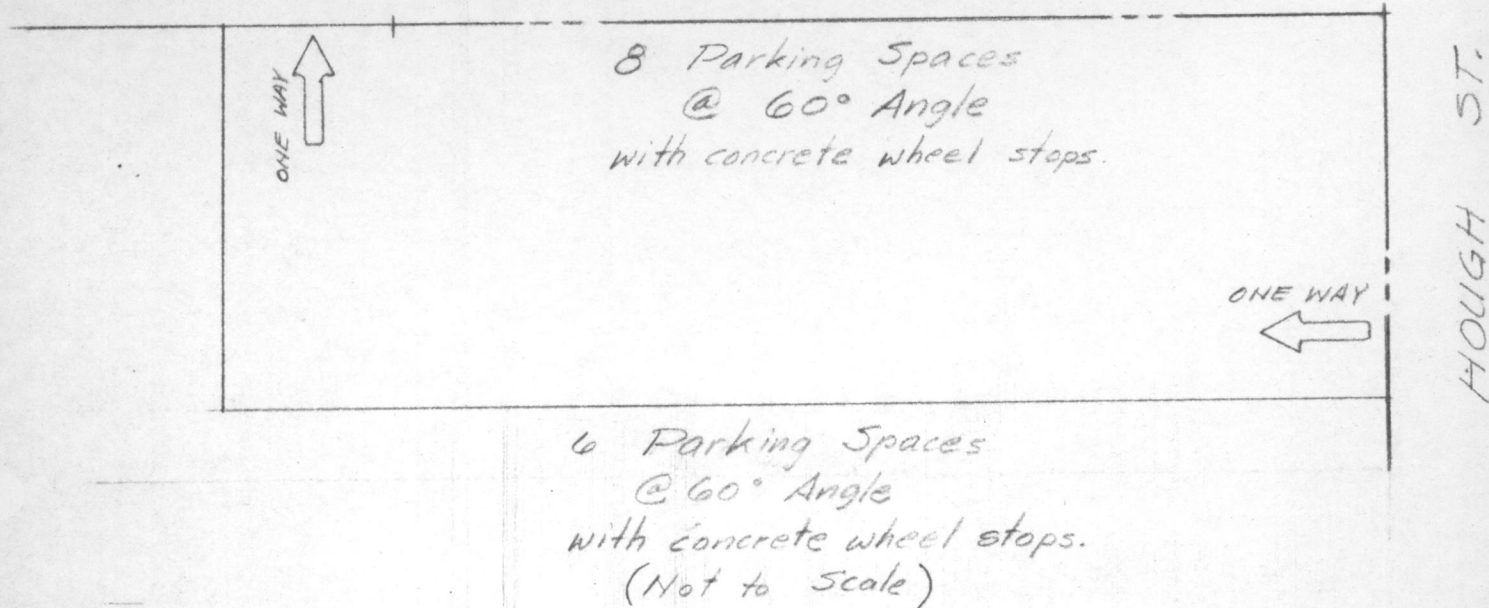 ONE WAY
8 Parking Spaces
@ 60° Angle
with concrete wheel stops.
HOUGH ST.
ONE WAY
6 Parking Spaces
@ 60° Angle
with concrete wheel stops.
(Not to Scale)